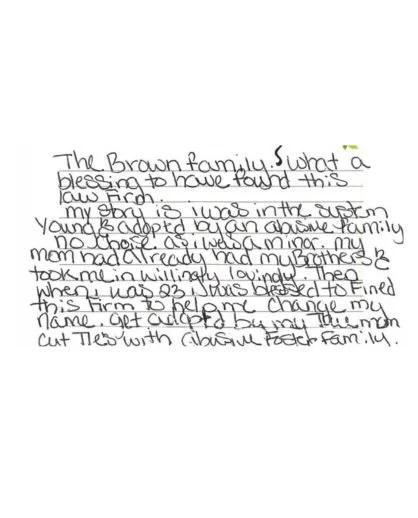 The Brown family. what a
blessing to have found this
law Firm.
my story is i was in the system
young & adopted by an abusive family
no choise as i was a minor. my
mom had already had my Brothers &
took me in willingly lovingly. Then
when i was 23 i was blessed to Fined
this Firm to help me change my
name. get adopted by my mom
cut Ties with abusive Foster Family.